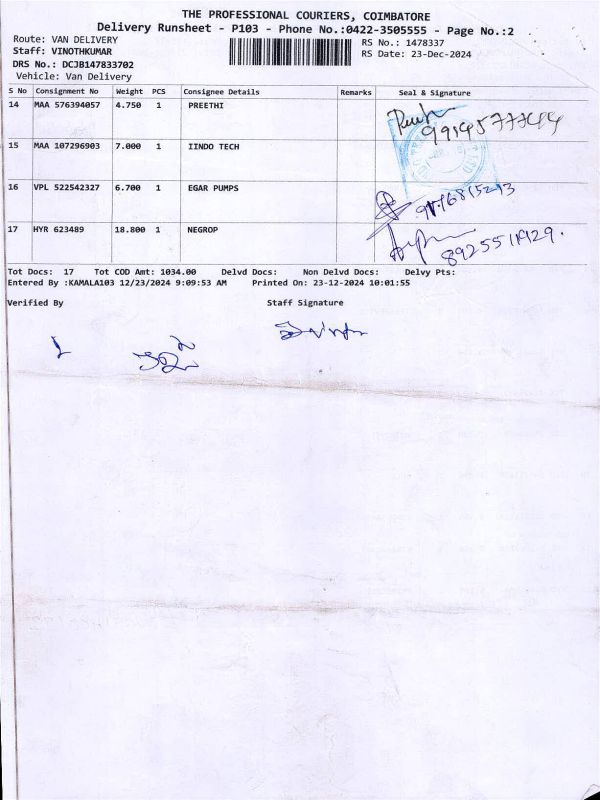 THE PROFESSIONAL COURIERS, COIMBATORE
Delivery Runsheet - P103 - Phone No.:0422-3505555 - Page No.:2
Route: VAN DELIVERY
RS No.: 1478337
Staff: VINOTHKUMAR
RS Date: 23-Dec-2024
DRS No.: DCJB147833702
Vehicle: Van Delivery
S No Consignment No Weight PCS Consignee Details Remarks Seal & Signature
14 MAA 576394057 4.750 1 PREETHI
15 MAA 107296903 7.000 1 IINDO TECH
16 VPL 522542327 6.700 1 EGAR PUMPS
17 HYR 623489 18.800 1 NEGROP
8925511929.
Tot Docs: 17 Tot COD Amt: 1034.00 Delvd Docs: Non Delvd Docs: Delvy Pts:
Entered By :KAMALA103 12/23/2024 9:09:53 AM Printed On: 23-12-2024 10:01:55
Verified By Staff Signature